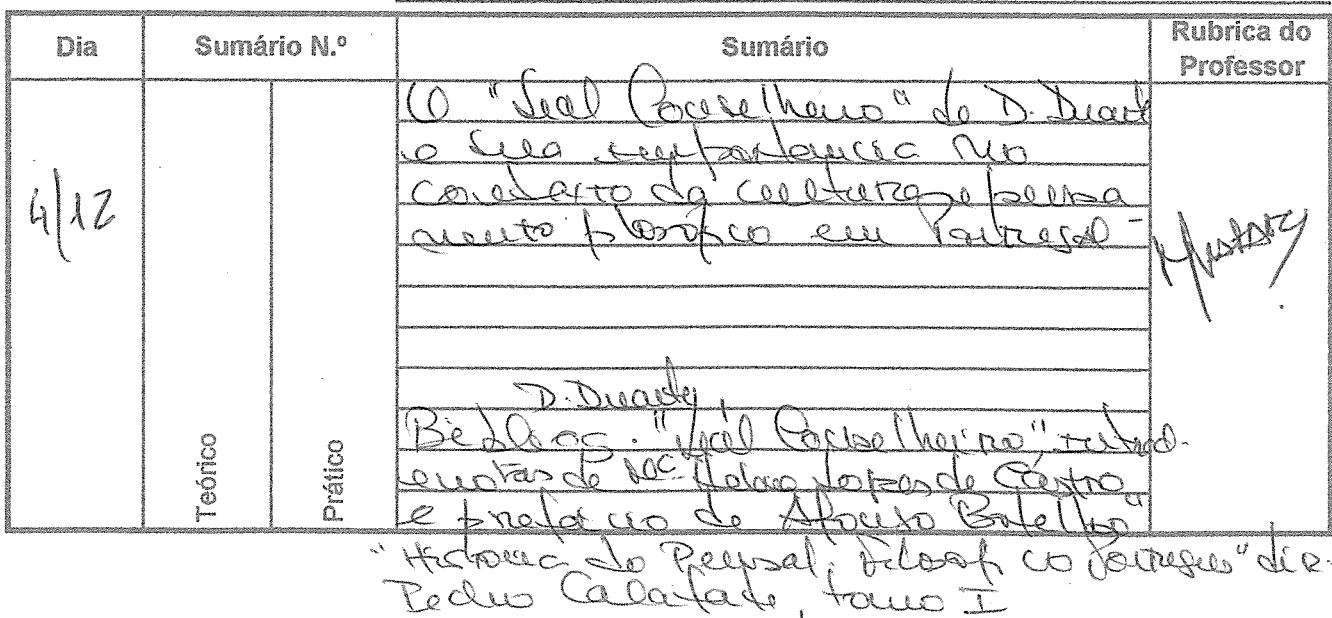 Dia Sumário N.º Sumário Rubrica do Professor
O "Leal Conselheiro" de D. Duarte
e sua importância no
4/12
contexto da cultura e pensa
mento filosófico em Portugal -
Teórico
Prático
D. Duarte,
Bibliog. "Leal Conselheiro", introd.
e notas de Mª Helena Lopes de Castro
e prefácio de Afonso Botelho"
"História do Pensa. Filosófico Português" dir.
Pedro Calafate, tomo I